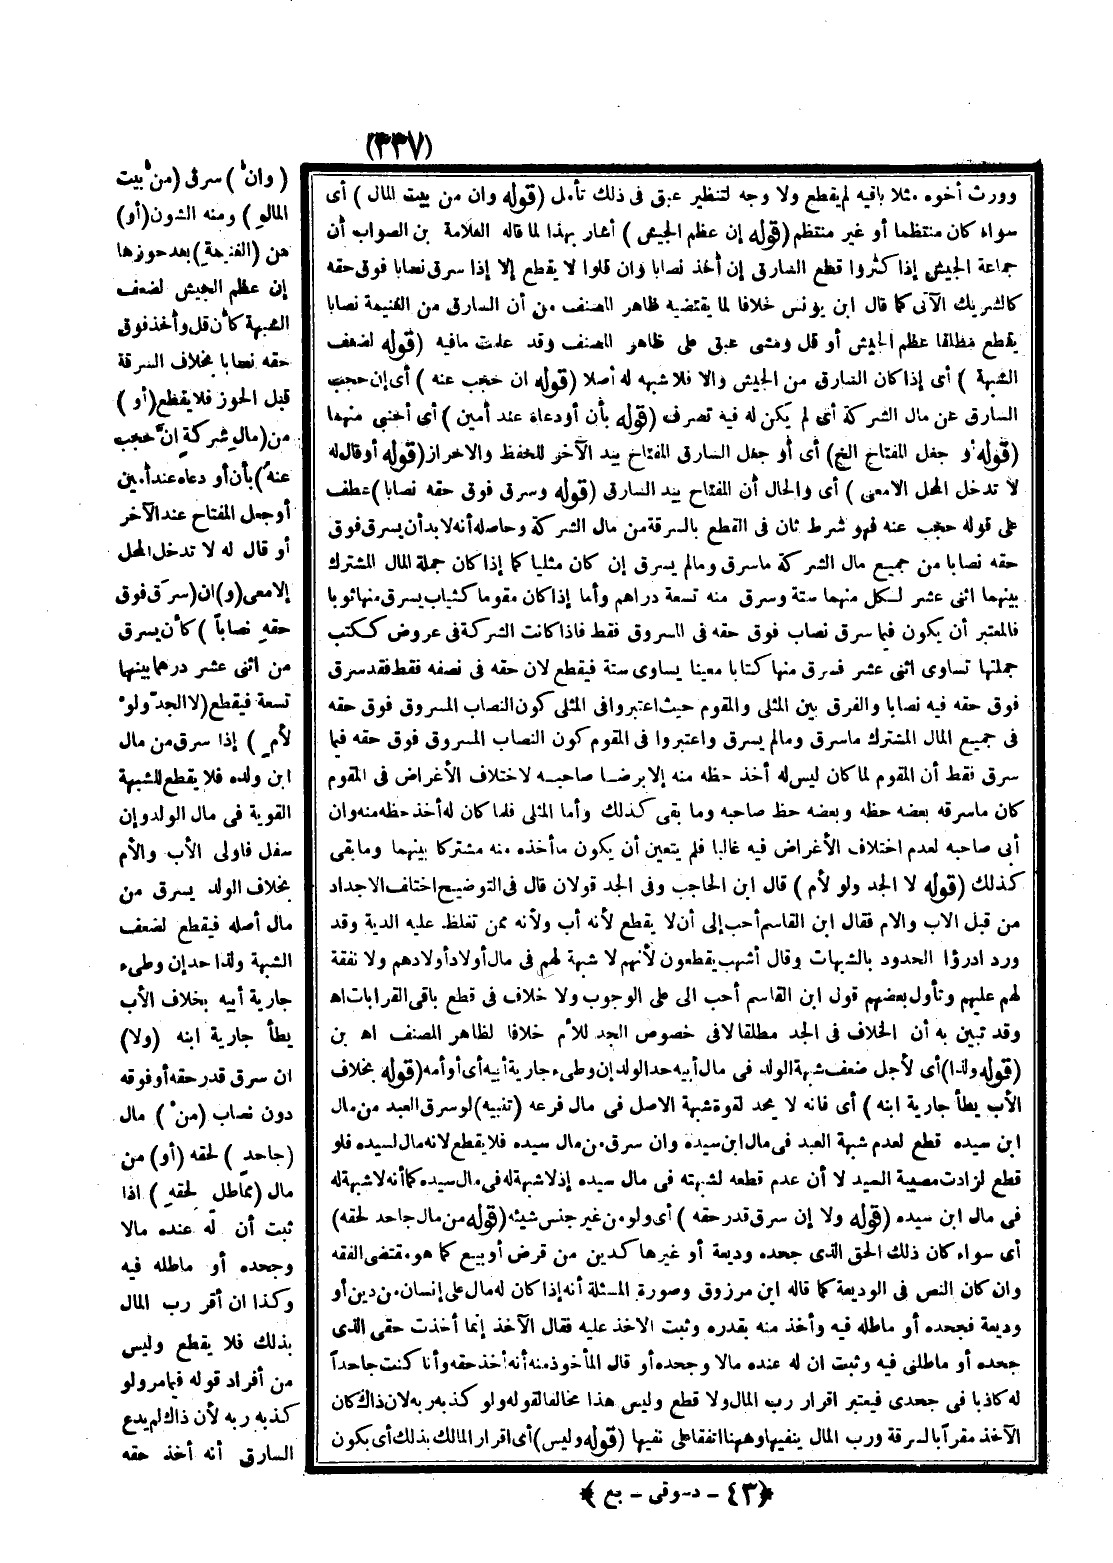 (٣٣٧)
وورث أخوه مثلا باقيه لم يقطع ولا وجه لتنظير عبق فى ذلك تأمل (قوله وان من بيت المال) أى
سواء كان منتظما أو غير منتظم (قوله إن عظم الجيش) أشار بهذا لما قاله العلامة بن الصواب أن
جماعة الجيش إذا كثروا قطع السارق إن أخذ نصابا وان قلوا لا يقطع إلا إذا سرق نصابا فوق حقه
كالشريك الآتى كما قال ابن يونس خلافا لما يقتضيه ظاهر المصنف من أن السارق من الغنيمة نصابا
يقطع مطلقا عظم الجيش أو قل ومشى عبق على ظاهر المصنف وقد علمت مافيه (قوله لضعف
الشبهة) أى إذا كان السارق من الجيش والا فلا شبهه له أصلا (قوله ان حجب عنه) أى إن حجب
السارق عن مال الشركة أى لم يكن له فيه تصرف (قوله بأن أودعاه عند أمين) أى أجنبى منهما
(قوله أو جعل المفتاح الخ) أى أو جعل السارق المفتاح بيد الآخر للحفظ والاحراز (قوله أو قال له
لا تدخل المحل الا معى) أى والحال أن المفتاح بيد السارق (قوله وسرق فوق حقه نصابا) عطف
على قوله حجب عنه فهو شرط ثان فى القطع بالسرقة من مال الشركة وحاصله أنه لابد أن يسرق فوق
حقه نصابا من جميع مال الشركة ماسرق ومالم يسرق إن كان مثليا كما إذا كان جملة المال المشترك
بينهما اثنى عشر لكل منهما ستة وسرق منه تسعة دراهم وأما إذا كان مقوما كثياب يسرق منها ثوبا
فالمعتبر أن يكون فيما سرق نصاب فوق حقه فى المسروق فقط فاذا كانت الشركة فى عروض ككتب
جملتها تساوى اثنى عشر فسرق منها كتابا معينا يساوى ستة فيقطع لان حقه فى نصفه فقط فقد سرق
فوق حقه فيه نصابا والفرق بين المثلى والمقوم حيث اعتبروا فى المثلى كون النصاب المسروق فوق حقه
فى جميع المال المشترك ماسرق ومالم يسرق واعتبروا فى المقوم كون النصاب المسروق فوق حقه فيما
سرق فقط أن المقوم لما كان ليس له أخذ حظه منه إلا برضا صاحبه لاختلاف الأغراض فى المقوم
كان ماسرقه بعضه حظه وبعضه حظ صاحبه وما بقى كذلك وأما المثلى فلما كان له أخذ حظه منه وان
أبى صاحبه لعدم اختلاف الأغراض فيه غالبا فلم يتعين أن يكون ما أخذه منه مشتركا بينهما ومابقى
كذلك (قوله لا الجد ولو لأم) قال ابن الحاجب وفى الجد قولان قال فى التوضيح اختلف الاجداد
من قبل الاب والام فقال ابن القاسم أحب إلى أن لا يقطع لأنه أب ولأنه ممن تغلظ عليه الدية وقد
ورد ادرؤا الحدود بالشبهات وقال أشهب يقطعون لأنهم لا شبهة لهم فى مال أولاد أولادهم ولا نفقة
لهم عليهم وتأول بعضهم قول ابن القاسم أحب الى على الوجوب ولا خلاف فى قطع باقى القرابات اه
وقد تبين به أن الخلاف فى الجد مطلقا لا فى خصوص الجد للأم خلافا لظاهر المصنف اه بن
(قوله ولذا) أى لأجل ضعف شبهة الولد فى مال أبيه حد الولد إن وطىء جارية أبيه أى أو أمه (قوله بخلاف
الأب يطأ جارية ابنه) أى فانه لا يحد لقوة شبهة الاصل فى مال فرعه (تنبيه) لو سرق العبد من مال
ابن سيده قطع لعدم شبهة العبد فى مال ابن سيده وان سرق من مال سيده فلا يقطع لانه مال لسيده فلو
قطع لزادت مصيبة السيد لا أن عدم قطعه لشبهته فى مال سيده إذ لا شبهة له فى مال سيده كما أنه لا شبهة له
فى مال ابن سيده (قوله ولا إن سرق قدر حقه) أى ولو من غير جنس شيئه (قوله من مال جاحد لحقه)
أى سواء كان ذلك الحق الذى جحده وديعة أو غيرها كدين من قرض أو بيع كما هو مقتضى الفقه
وان كان النص فى الوديعة كما قاله ابن مرزوق وصورة المسئلة أنه إذا كان له مال على إنسان من دين أو
وديعة فجحده أو ماطله فيه وأخذ منه بقدره وثبت الاخذ عليه فقال الآخذ إنما أخذت حقى الذى
جحده أو ماطلنى فيه وثبت ان له عنده مالا وجحده أو قال المأخوذ منه أنه أخذ حقه وأنا كنت جاحداً
له كاذبا فى جحدى فيعتبر اقرار رب المال ولا قطع وليس هذا مخالفا لقوله ولو كذبه ربه لان ذاك كان
الآخذ مقراً بالسرقة ورب المال ينفيها وهنا اتفقا على نفيها (قوله وليس) أى اقرار المالك بذلك أى بكون
(وان) سرق (من بيت
المال) ومنه الشون (أو)
من (الغنيمة) بعد حوزها
إن عظم الجيش لضعف
الشبهة كأن قل وأخذ فوق
حقه نصابا بخلاف السرقة
قبل الحوز فلا يقطع (أو)
من (مال شركة ان حجب
عنه) بأن أودعاه عند أمين
أو جعل المفتاح عند الآخر
أو قال له لا تدخل المحل
إلا معى (و) ان (سرق فوق
حقه نصاباً) كأن يسرق
من اثنى عشر درهما بينهما
تسعة فيقطع (لا الجد ولو
لأم) إذا سرق من مال
ابن ولده فلا يقطع للشبهة
القوية فى مال الولد وإن
سفل فاولى الأب والأم
بخلاف الولد يسرق من
مال أصله فيقطع لضعف
الشبهة ولذا حد إن وطىء
جارية أبيه بخلاف الأب
يطأ جارية ابنه (ولا)
ان سرق قدر حقه أو فوقه
دون نصاب (من) مال
(جاحد) لحقه (أو) من
مال (مماطل لحقه) اذا
ثبت أن له عنده مالا
وجحده أو ماطله فيه
وكذا ان أقر رب المال
بذلك فلا يقطع وليس
من أفراد قوله فيما مر ولو
كذبه ربه لأن ذاك لم يدع
السارق أنه أخذ حقه
﴿٤٣ - دسوقى - بع﴾